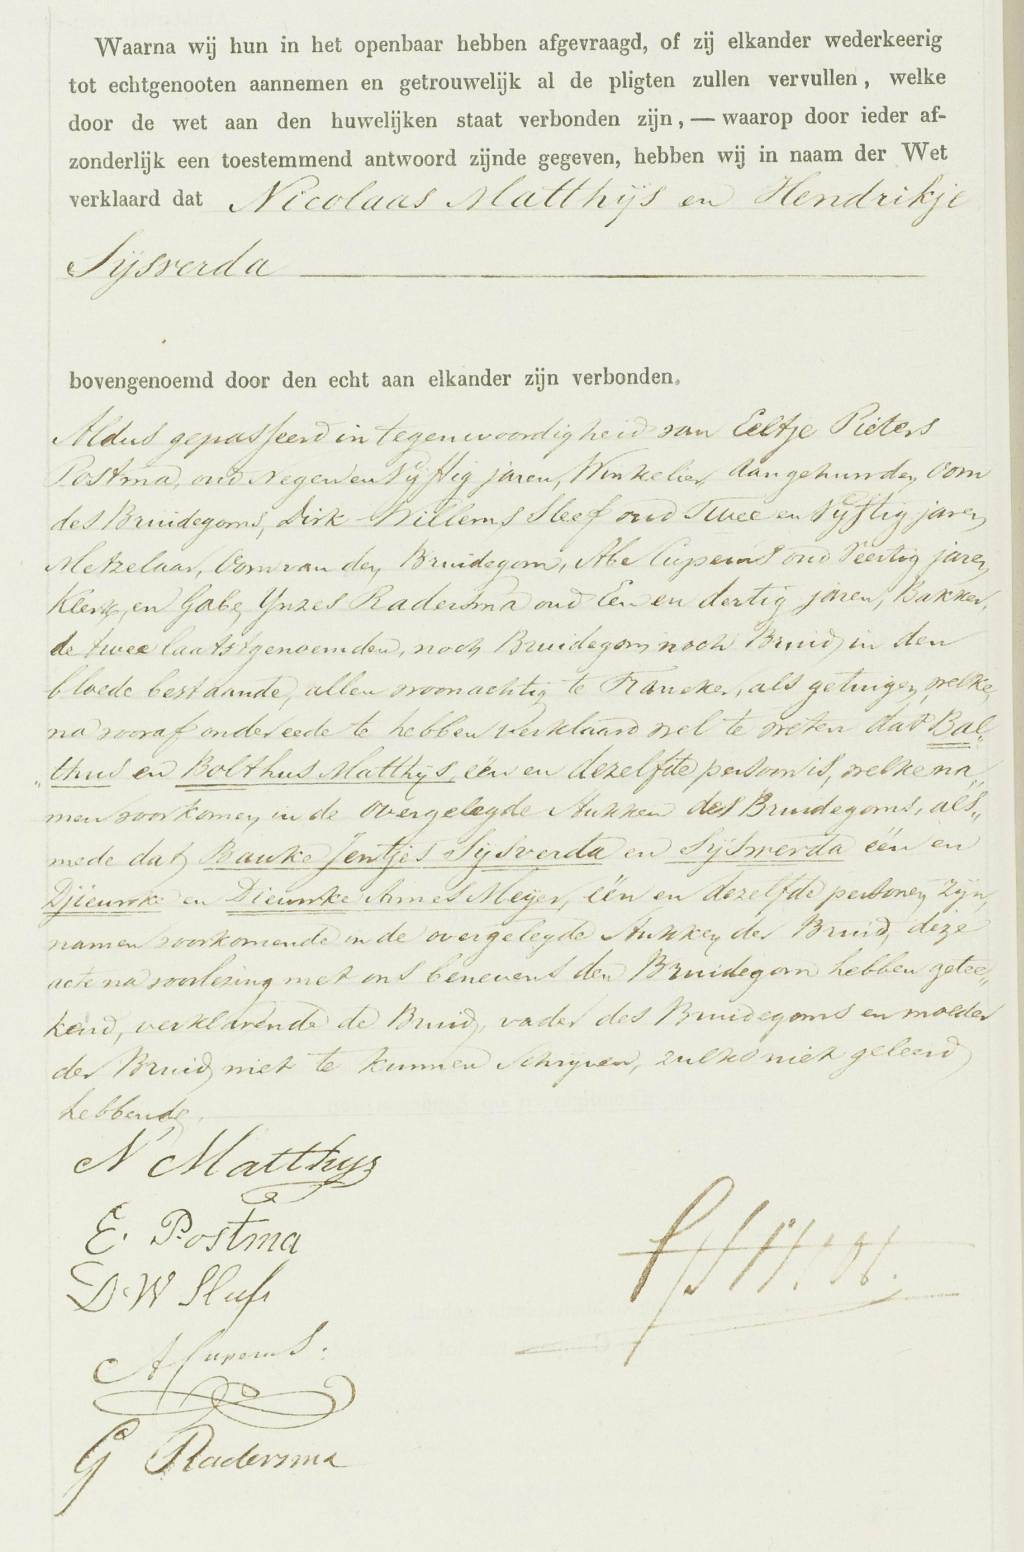 Waarna wij hun in het openbaar hebben afgevraagd, of zij elkander wederkeerig
tot echtgenooten aannemen en getrouwelijk al de pligten zullen vervullen, welke
door de wet aan den huwelijken staat verbonden zijn, — waarop door ieder af-
zonderlijk een toestemmend antwoord zijnde gegeven, hebben wij in naam der Wet
verklaard dat Nicolaas Matthijs en Hendrikje
Sijsverda
bovengenoemd door den echt aan elkander zijn verbonden.
Aldus gepasseerd in tegenwoordigheid van Eeltje Pieters
Postma, oud negen en vijftig jaren, Winkelier, aangehuwden Oom
des Bruidegoms, Dirk Willems Sleef oud Twee en vijftig jaren
Metzelaar, Oom van den Bruidegom, Abe Cuperus oud veertig jaren
Klerk, en Gabe Ynzes Radersma oud Een en dertig jaren, Bakker,
de twee laatstgenoemden, noch Bruidegom noch Bruid in den
bloede bestaande, allen woonachtig te Franeker, als getuigen, welke
na vooraf onder eede te hebben verklaard wel te weten dat Bal„
„thus en Bolthus Matthijs, één en dezelfde persoon is, welke na„
men voorkomen in de overgelegde stukken des Bruidegoms, als„
mede dat Bauke Jentjes Sijsverda en Sijswerda één en
Djieuwke en Dieuwke Annes Meijer, één en dezelfde personen zijn,
namen voorkomende in de overgelegde stukken der Bruid, deze
acte na voorlezing met ons benevens den Bruidegom hebben getee„
kend, verklarende de Bruid, vader des Bruidegoms en moeder
der Bruid niet te kunnen schrijven, zulks niet geleerd
hebbende.
N Matthys
E. Postma
D. W Sleef
A Cuperus.
G Radersma